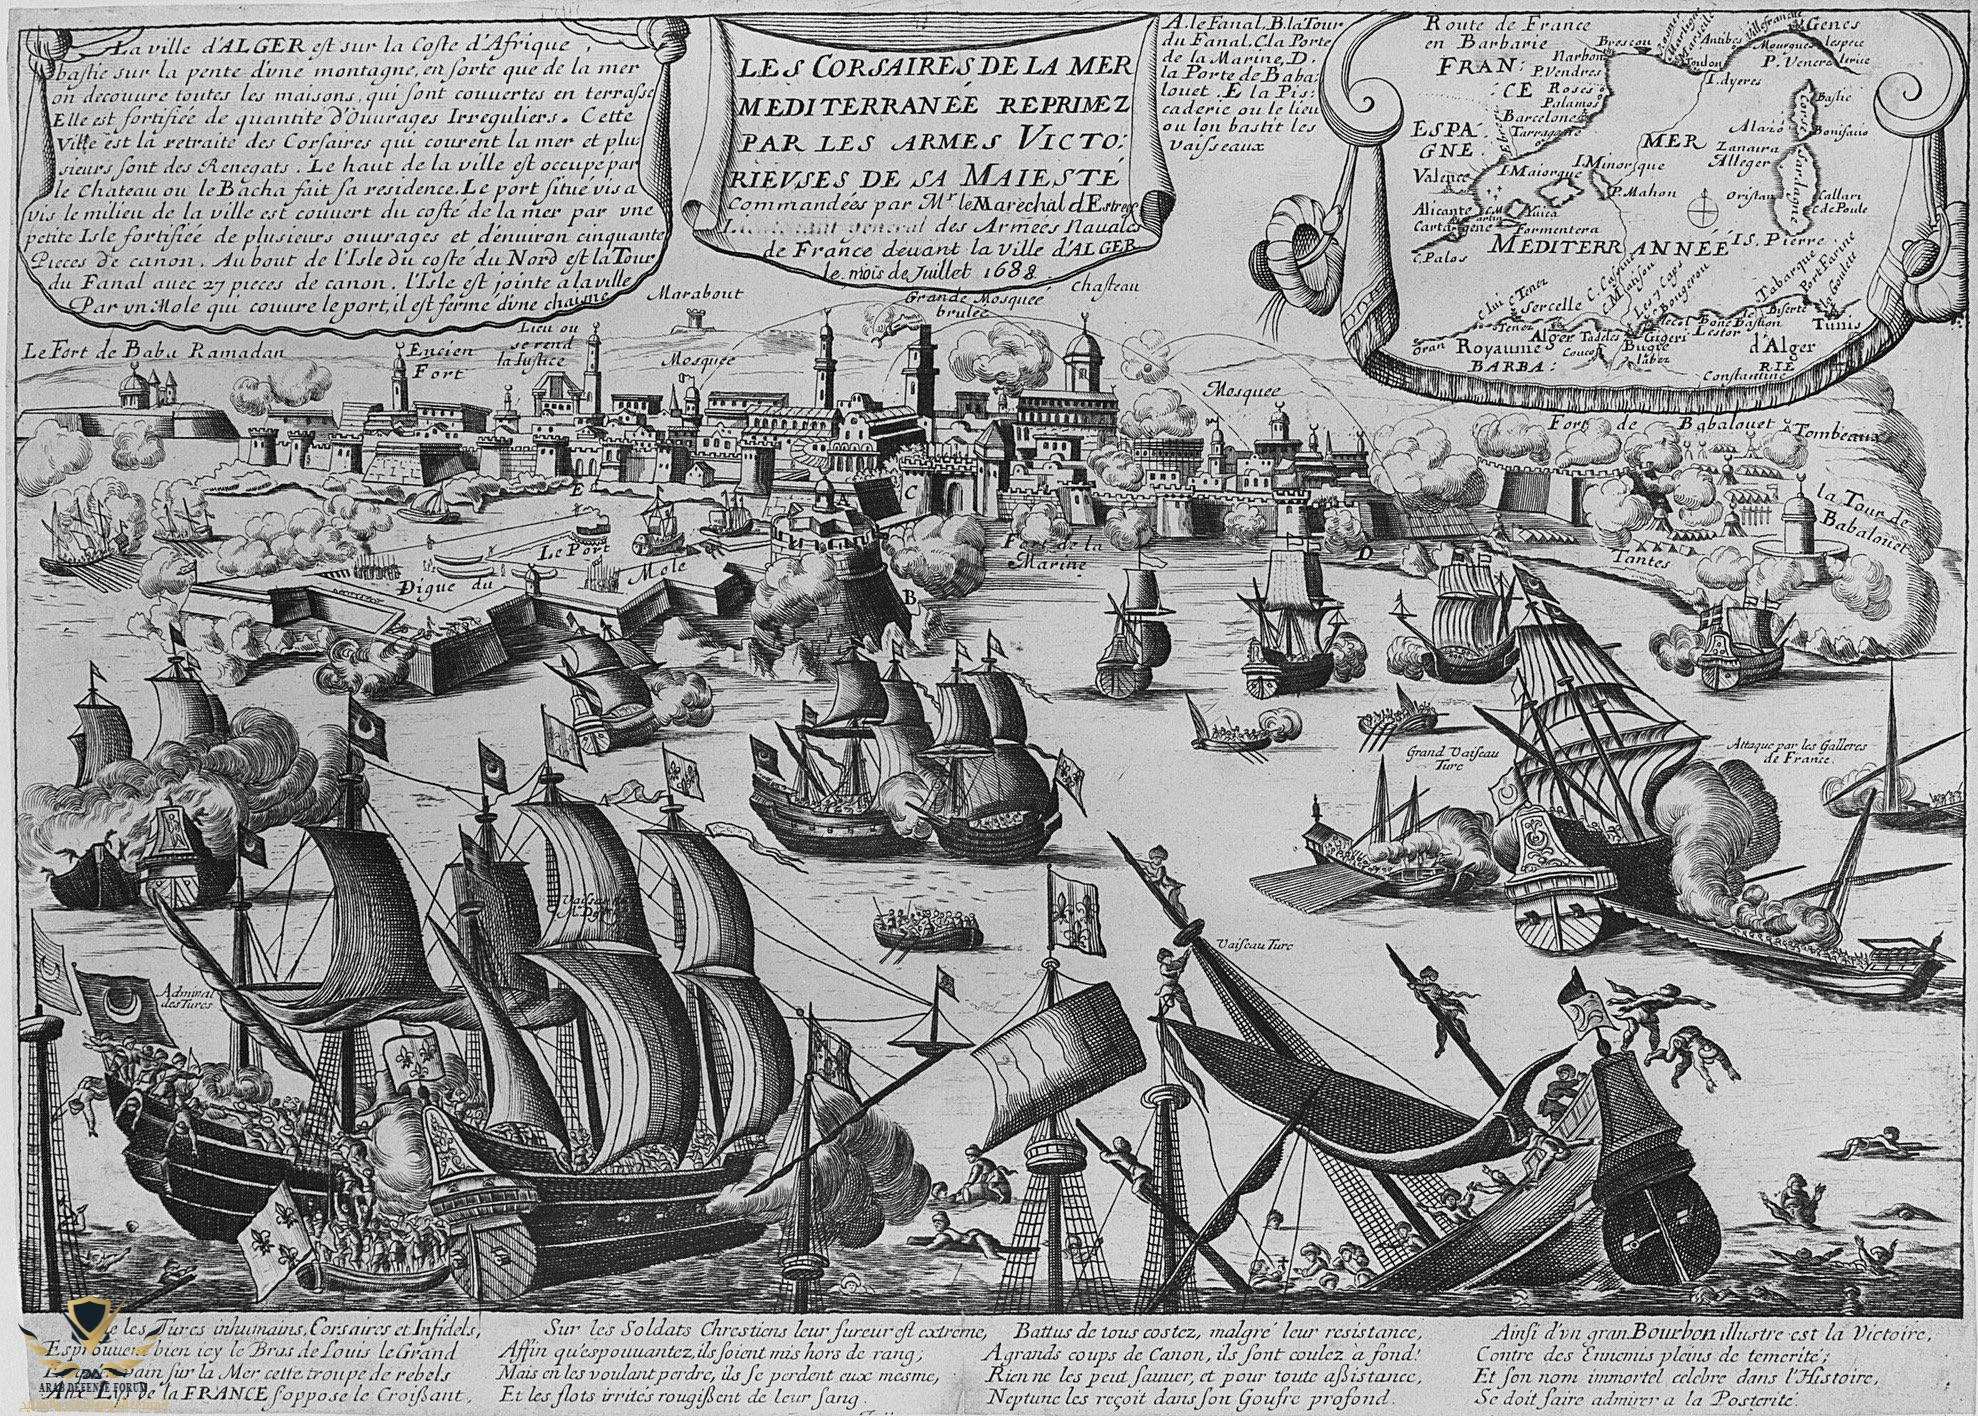 La ville d'ALGER est sur la Coste d'Afrique,
bastie sur la pente d'vne montagne, en sorte que de la mer
on decouure toutes les maisons, qui sont couuertes en terrasse
Elle est fortifiée de quantité d'Ouurages Irreguliers. Cette
Ville est la retraite des Corsaires qui courent la mer et plu
sieurs sont des Renegats. Le haut de la ville est occupé par
le Chateau ou le Bacha fait sa residence. Le port situé vis a
vis le milieu de la ville est couuert du costé de la mer par vne
petite Isle fortifiée de plusieurs ouurages et d'enuiron cinquante
Pieces de canon. Au bout de l'Isle du costé du Nord est la Tour
du Fanal auec 27 pieces de canon. l'Isle est jointe a la ville
Par vn Mole qui couure le port, il est fermé d'vne chaisne
LES CORSAIRES DE LA MER
MEDITERRANEÉ REPRIMEZ
PAR LES ARMES VICTO:
RIEVSES DE SA MAIESTÉ
Commandées par Mr. le Marechal d'Estrées
general des Armées Nauales
de France deuant la ville d'ALGER
le mois de Juillet 1688.
A. le Fanal. B. la Tour
du Fanal. C. la Porte
de la Marine, D.
la Porte de Baba:
louet. E la Pis:
caderie ou le lieu
ou lon bastit les
Vaisseaux
Route de France
en Barbarie
FRAN:
CE
ESPA
GNE
MER
MEDITERRANNÉE
Brescou
Narbon
P. Vendres
Roses
Palamos
Barcelone
Tarragone
Valence
Alicante
Cartagene
C. Palos
Toulon
Antibes
Villefranche
Mourgues
Genes
lespece
P. Venere
lerice
I. dyeres
Corce
Bastie
Bonifacio
Alazo
Zanaira
Alleger
Sardaigne
Oristan
Callari
C. de Poule
I S. Pierre
I. Minorque
I. Maiorque
P. Mahon
Yuica
Formentera
Oran
Tenez
c Tenez
Sercelle
Alger
Royaume
d'Alger
BARBA:
RIE
Tadeles
Gigeri
Bugie
Couco
Labez
Constantine
Bone
Bastion
Biserte
Tabarque
Port Farine
la Goulett
Tunis
Les 7 Caps
Le Fort de Baba Ramadan
Encien
Fort
Lieu ou
se rend
la Justice
Marabout
Mosqueé
Grande Mosqueé
brulee
Chasteau
Mosquee
Fort de Babalouet
Tombeaux
la Tour de
Babalouet
Tantes
E
A
C
B
D
Le Port
Digue du Mole
Fort de la
Marine
Grand Vaisseau
Turc
Attaque par les Galleres
de France.
Admiral
des Turcs
Vaisseau Turc
les Turcs inhumains, Corsaires et Infidels,
Esprouuent bien icy le Bras de Louis le Grand
sur la Mer cette troupe de rebels
Aux Lys de la FRANCE s'oppose le Croissant,
Sur les Soldats Chrestiens leur fureur est extreme,
Affin qu'espouuantez, ils soient mis hors de rang;
Mais en les voulant perdre, ils se perdent eux mesme,
Et les flots irrités rougissent de leur sang.
Battus de tous costez, malgré leur resistance,
A grands coups de Canon, ils sont coulez a fond:
Rien ne les peut sauuer, et pour toute assistance,
Neptune les reçoit dans son Goufre profond.
Ainsi d'vn gran Bourbon illustre est la Victoire,
Contre des Ennemis pleins de temerité;
Et son nom immortel celebre dans l'Histoire,
Se doit faire admirer a la Posterité.
ARAB DEFENSE FORUM